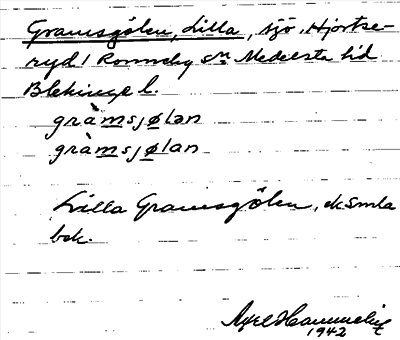 Gramsgölen, Lilla, sjö, Hjortse-
ryd, Ronneby sn Medelsta hd
Blekinge l.
gràmsjølən
gràmsjølan
Lilla Gramsgölen, ek Smla
bok.
Axel Hammelid
1942